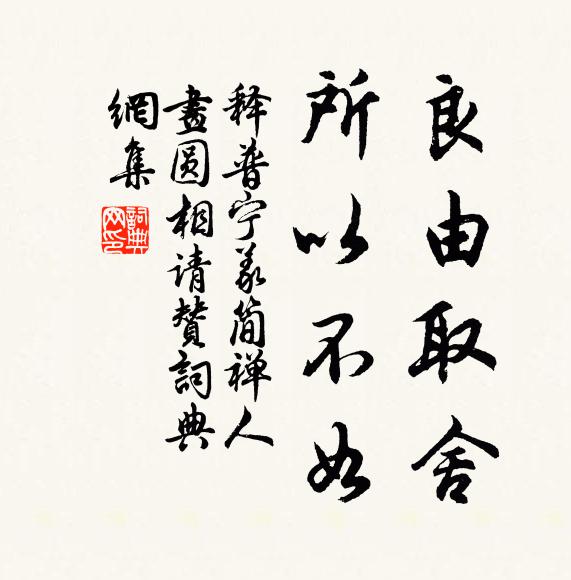 良由取舍
所以不如
释普宁义简禅人
画圆相请赞詞典
網集
詞典网印